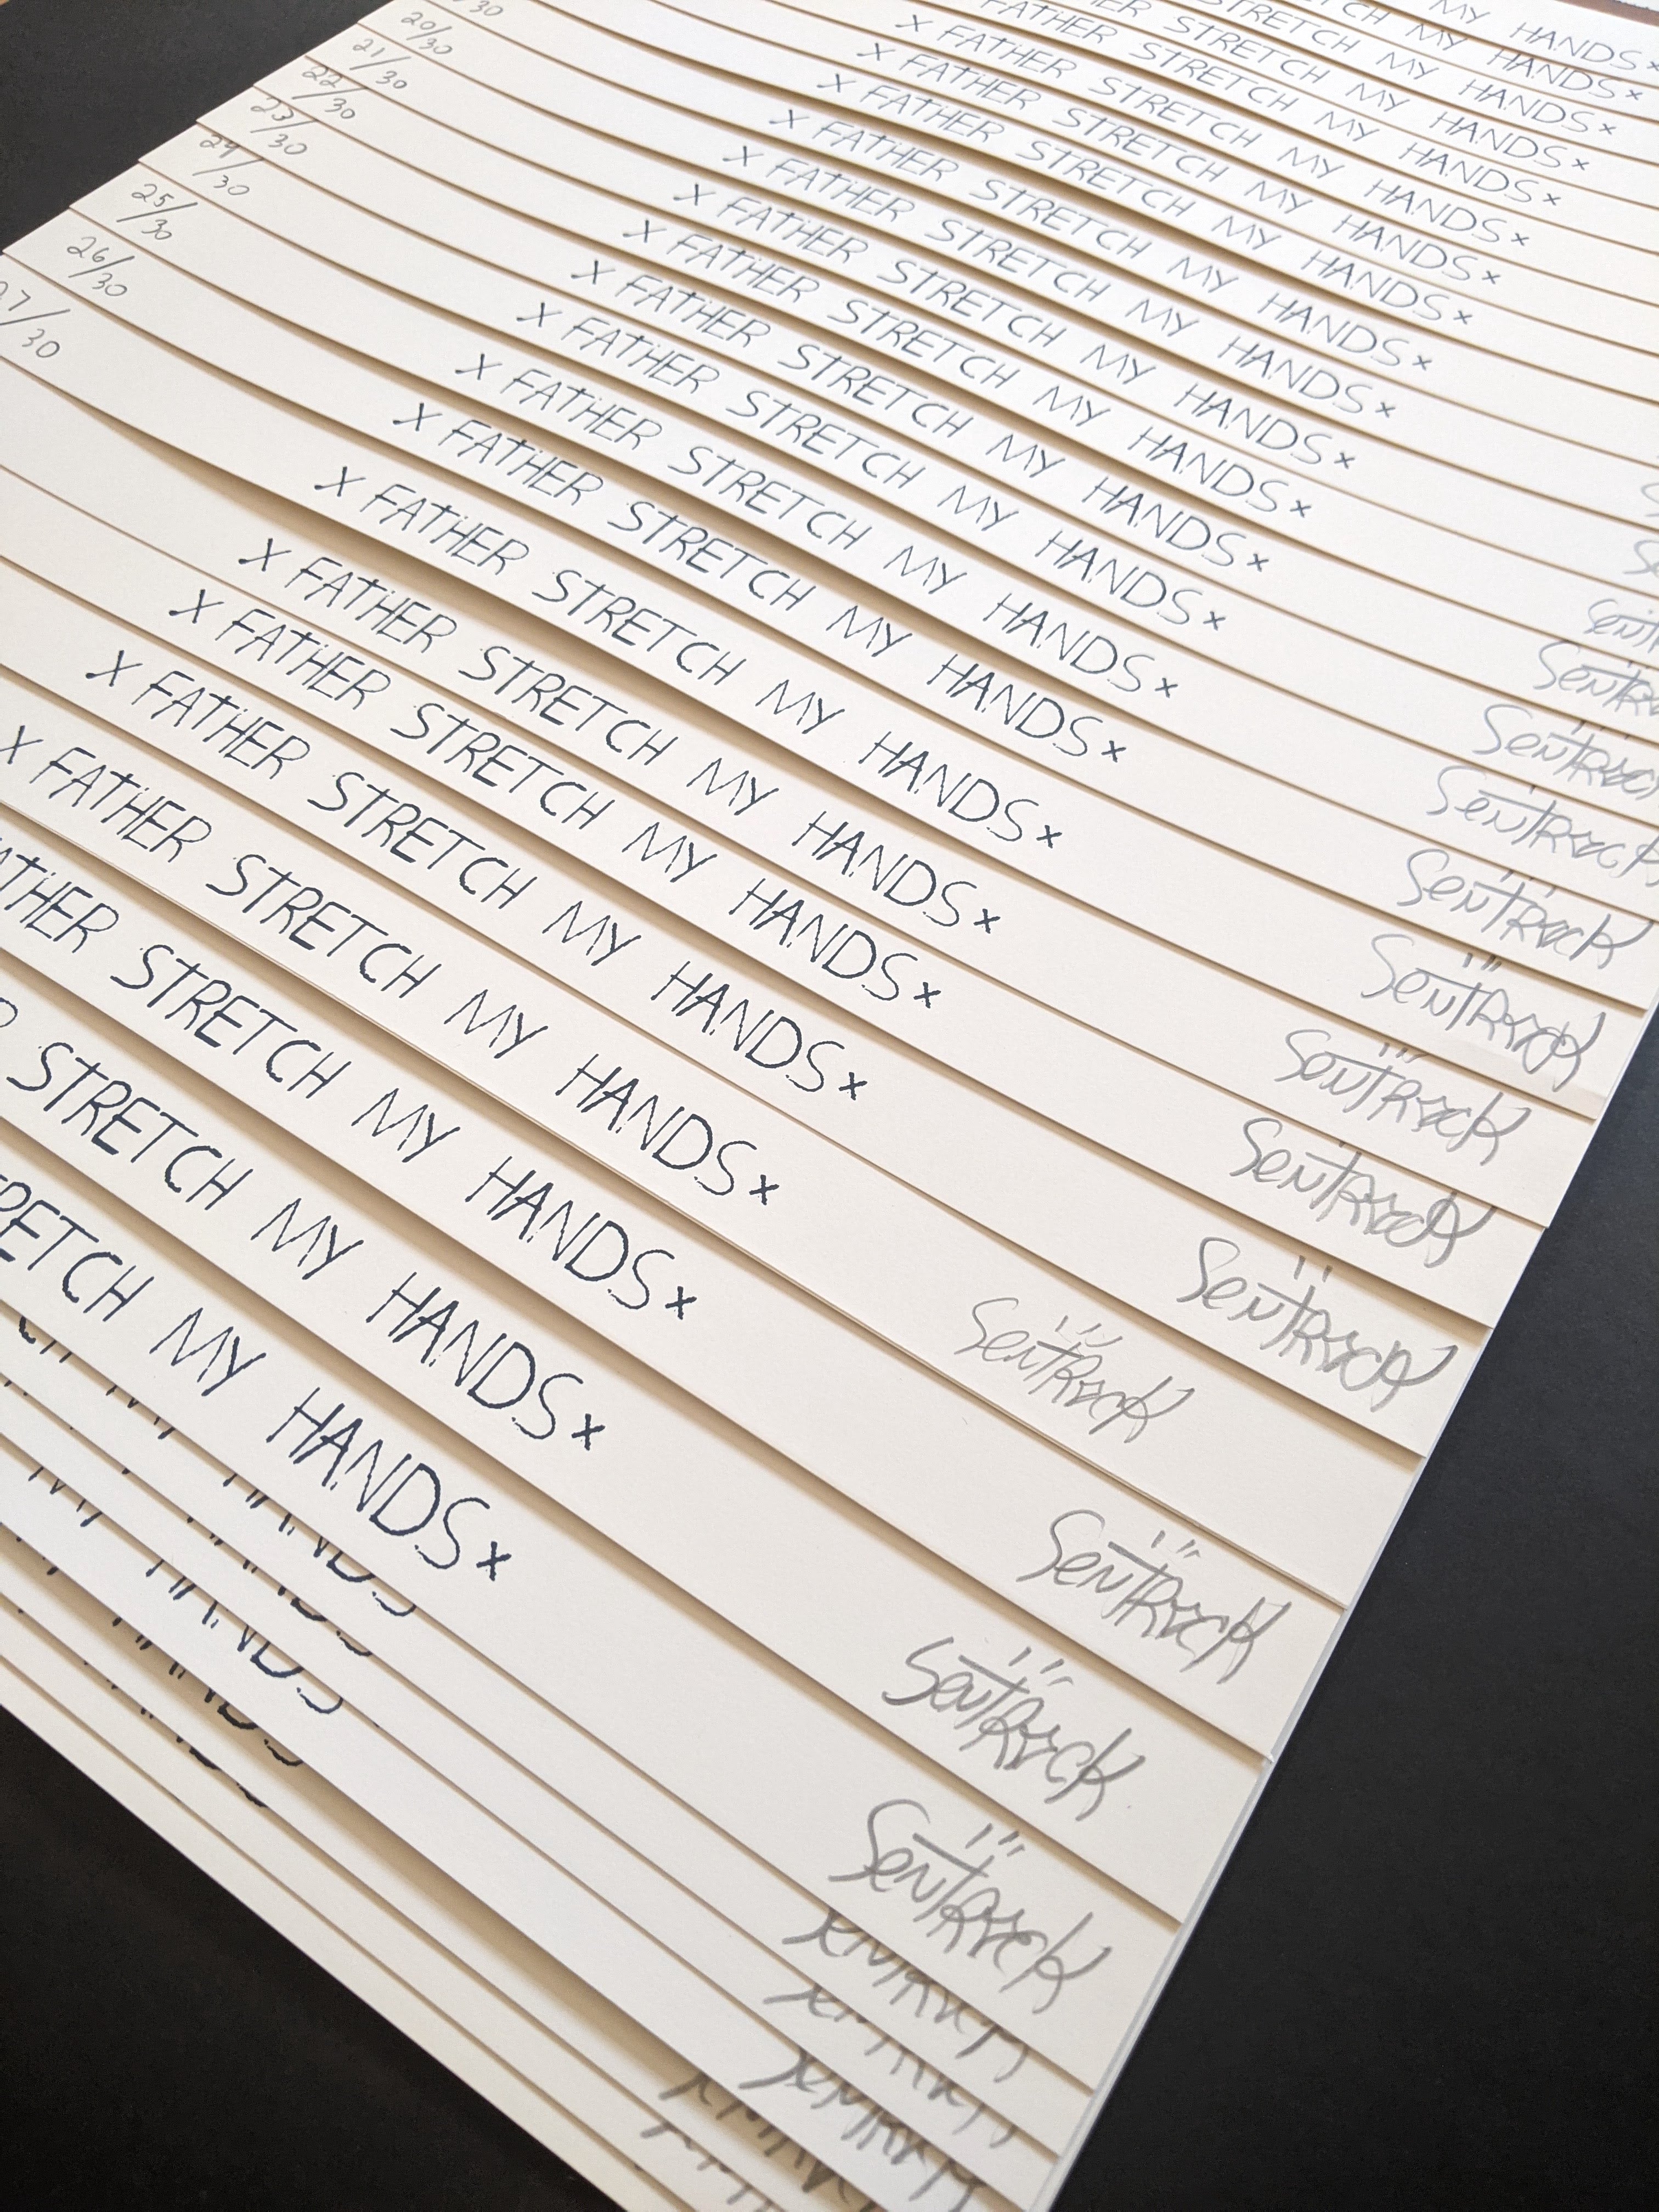 MY HANDS×
MY HANDS×
STRETCH MY HANDS×
STRETCH MY HANDS×
FATHER STRETCH MY HANDS×
X FATHER STRETCH MY HANDS×
20/30 X FATHER STRETCH MY HANDS×
21/30 X FATHER STRETCH MY HANDS×
22/30 X FATHER STRETCH MY HANDS×
23/30 X FATHER STRETCH MY HANDS×
24/30 X FATHER STRETCH MY HANDS×
25/30 X FATHER STRETCH MY HANDS×
26/30 X FATHER STRETCH MY HANDS× SENTRock
27/30 X FATHER STRETCH MY HANDS× SENTRock
X FATHER STRETCH MY HANDS× SENTRock
X FATHER STRETCH MY HANDS× SENTRock
X FATHER STRETCH MY HANDS× SENTRock
X FATHER STRETCH MY HANDS× SENTRock
X FATHER STRETCH MY HANDS× SENTRock
X FATHER STRETCH MY HANDS× SENTRock
X FATHER STRETCH MY HANDS× SENTRock
STRETCH MY HANDS× SENTRock
STRETCH MY HANDS× SENTRock
MY HANDS× SENTRock